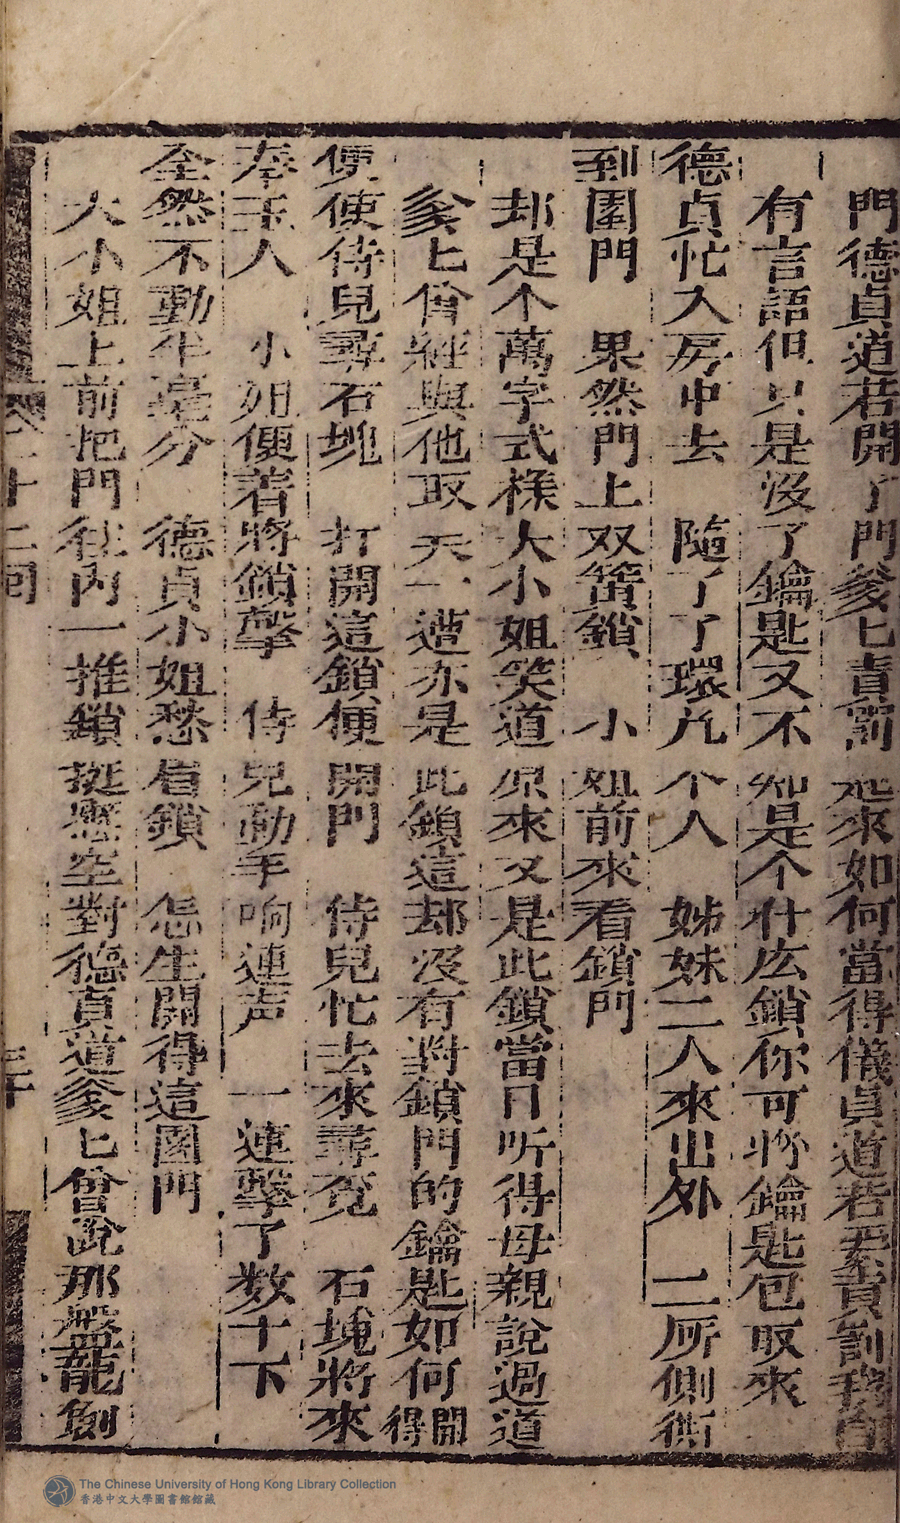 門德貞道若開了門爹匕責罰起來如何當得儀貞道若要責罰我自
有言語但只是沒了鑰匙又不知是个什庅鎖你可將鑰匙包取來
德貞忙入房中去　隨了了環九个人　姊妹二人來出外　二所側衖
到園門　果然門上双簧鎖　小姐前來看鎖門
却是个萬字式樣大小姐笑道原來又是此鎖當日听得母親說過道
爹匕曾經與他取　天一遭亦是此鎖這却沒有對鎖門的鑰匙如何開得
便使侍兒尋石塊　打開這鎖便開門　侍兒忙去來尋覔　石塊將來
奉玉人　小姐便着將鎖擊　侍兒動手响連声　一連擊了数十下
全然不動半毫分　德貞小姐愁眉鎖　怎生開得這園門
大小姐上前把門往內一推鎖挺懸空對德貞道爹匕曾說那盤龍劍
二十二囘
三十
The Chinese University of Hong Kong Library Collection
香港中文大學圖書館館藏